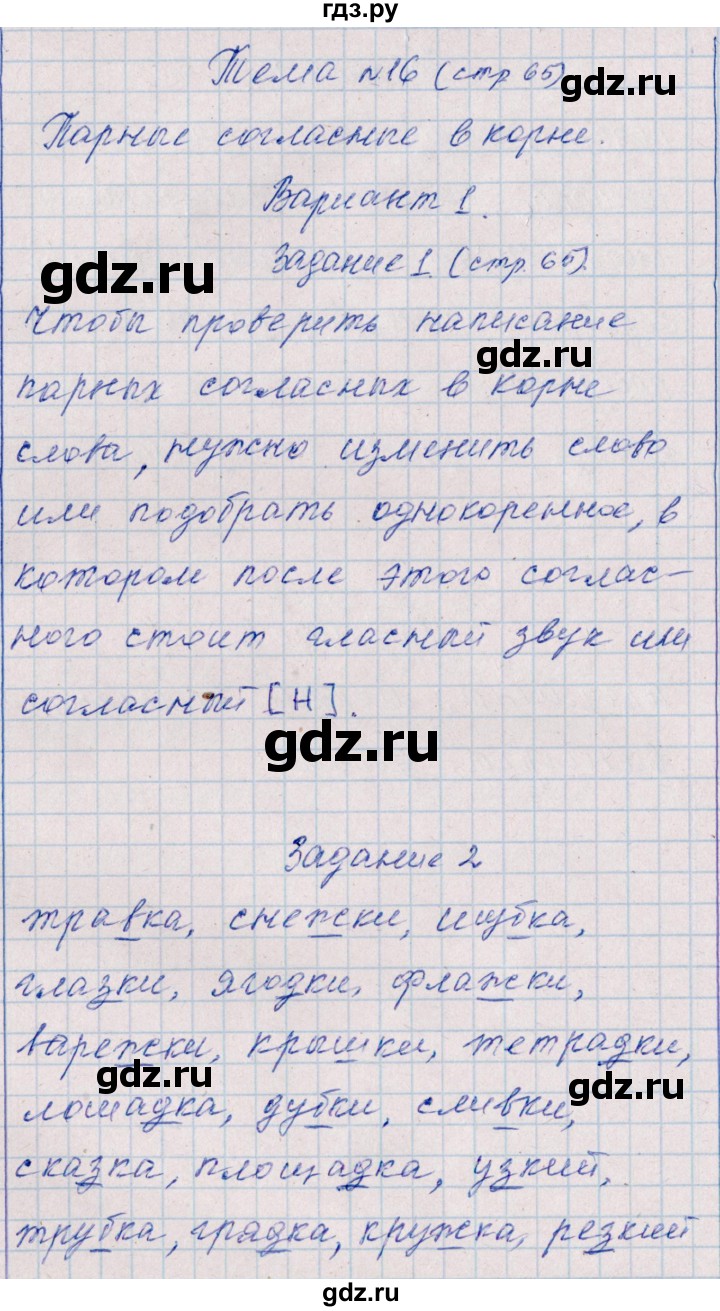 гдз.ру
Тема №16 (стр 65)
gdz.ru
Парные согласные в корне.
Вариант 1.
Задание 1. (стр. 65).
gdz.ru
Чтобы проверить написание
gdz.ru
парных согласных в корне
слова, нужно изменить слово
или подобрать однокоренное, в
котором после этого соглас-
ного стоит гласный звук или
согласный [Н].
gdz.ru
Задание 2
травка, снежки, шубка,
глазки, ягодки, флажки,
варежки, крышки, тетрадки,
gdz.ru
gdz.ru
лошадка, дубки, сливки,
сказка, площадка, узкий,
трубка, грядка, кружка, резкий
gdz.ru